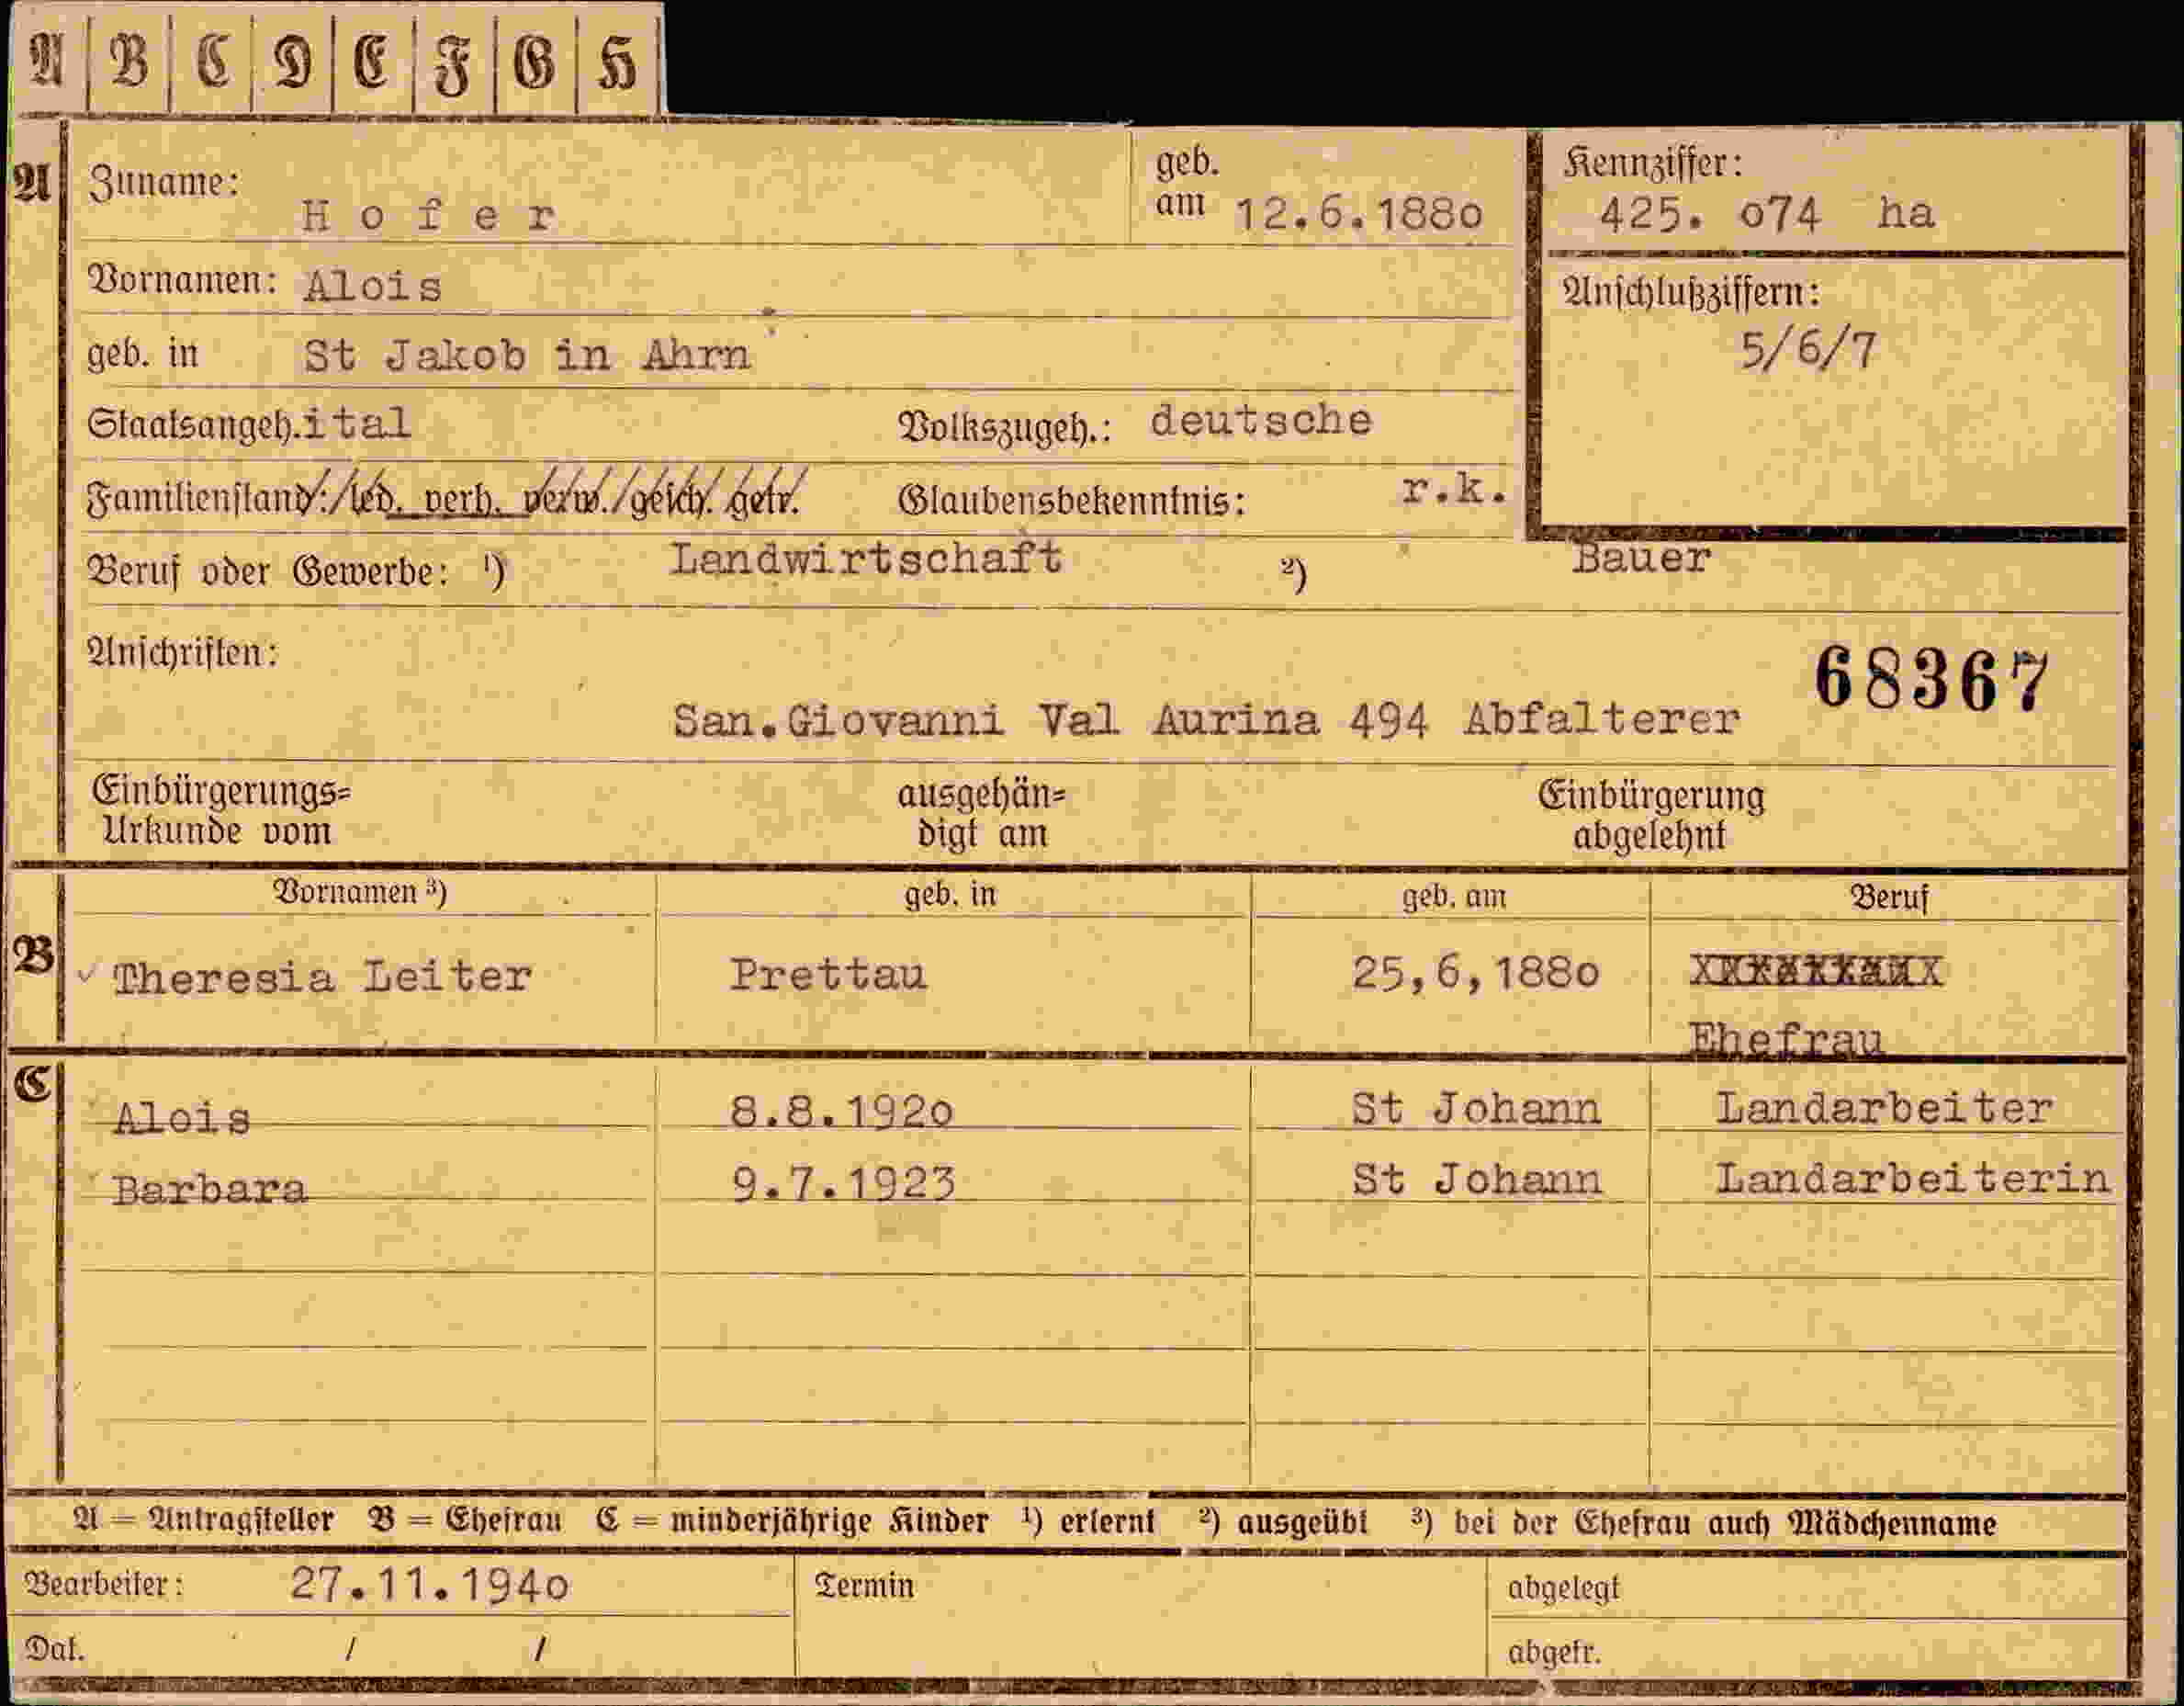 A B C D E F G H
A Zuname: Hofer geb. am 12.6.1880 Kennziffer: 425. 074 ha
Vornamen: Alois Anschlußziffern: 5/6/7
geb. in St Jakob in Ahrn
Staatsangeh. ital Volkszugeh.: deutsche
Familienstand: led. verh. verw. gesch. getr. Glaubensbekenntnis: r.k.
Beruf oder Gewerbe: ¹) Landwirtschaft ²) Bauer
Anschriften: 68367
San.Giovanni Val Aurina 494 Abfalterer
Einbürgerungs= ausgehän= Einbürgerung
Urkunde vom digt am abgelehnt
Vornamen ³) geb. in geb. am Beruf
B Theresia Leiter Prettau 25,6,1880
Ehefrau
C Alois 8.8.1920 St Johann Landarbeiter
Barbara 9.7.1923 St Johann Landarbeiterin
A = Antragsteller B = Ehefrau C = minderjährige Kinder ¹) erlernt ²) ausgeübt ³) bei der Ehefrau auch Mädchenname
Bearbeiter: 27.11.1940 Termin abgelegt
Dat. / / abgefr.